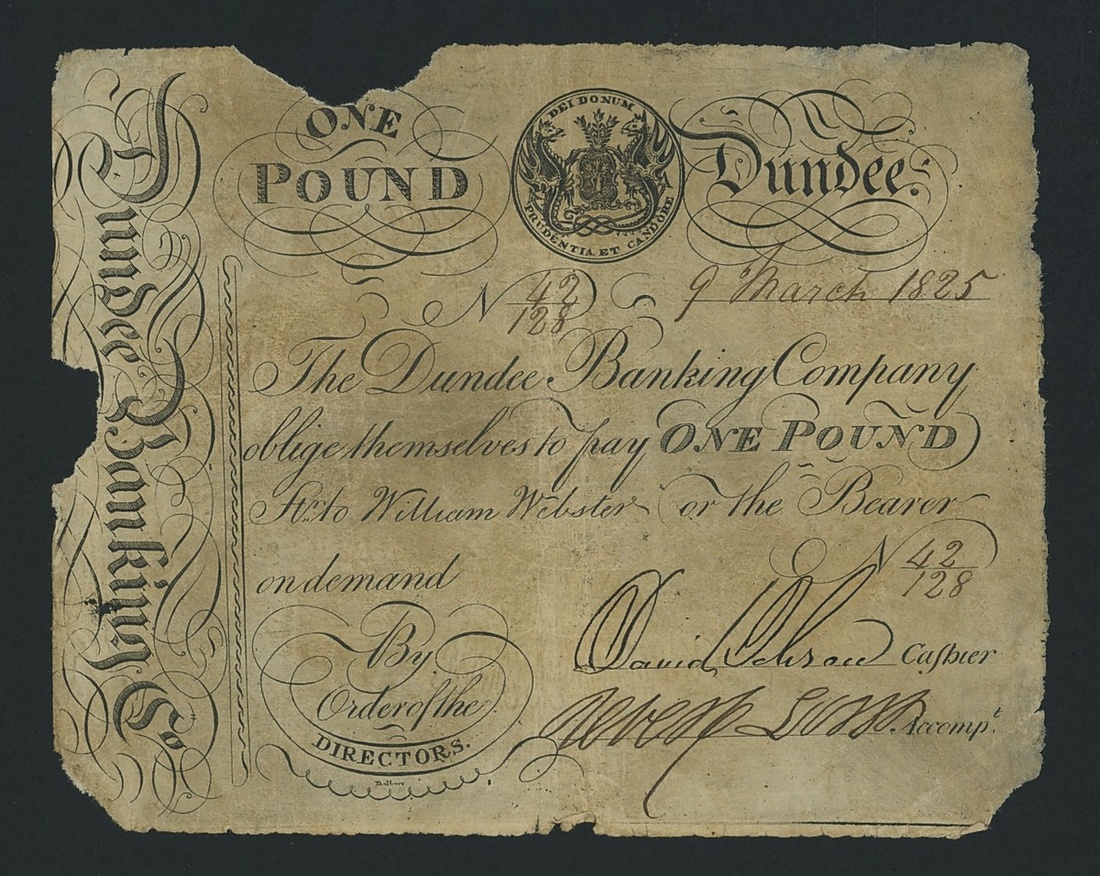 Dundee Banking Co
ONE
POUND
DEI DONUM
PRUDENTIA ET CANDORE
Dundee.
N 42/128
9 March 1825
The Dundee Banking Company
oblige themselves to pay ONE POUND
Str. to William Webster or the Bearer
on demand
N 42/128
By
Order of the
DIRECTORS.
David Cashier
Accompt.